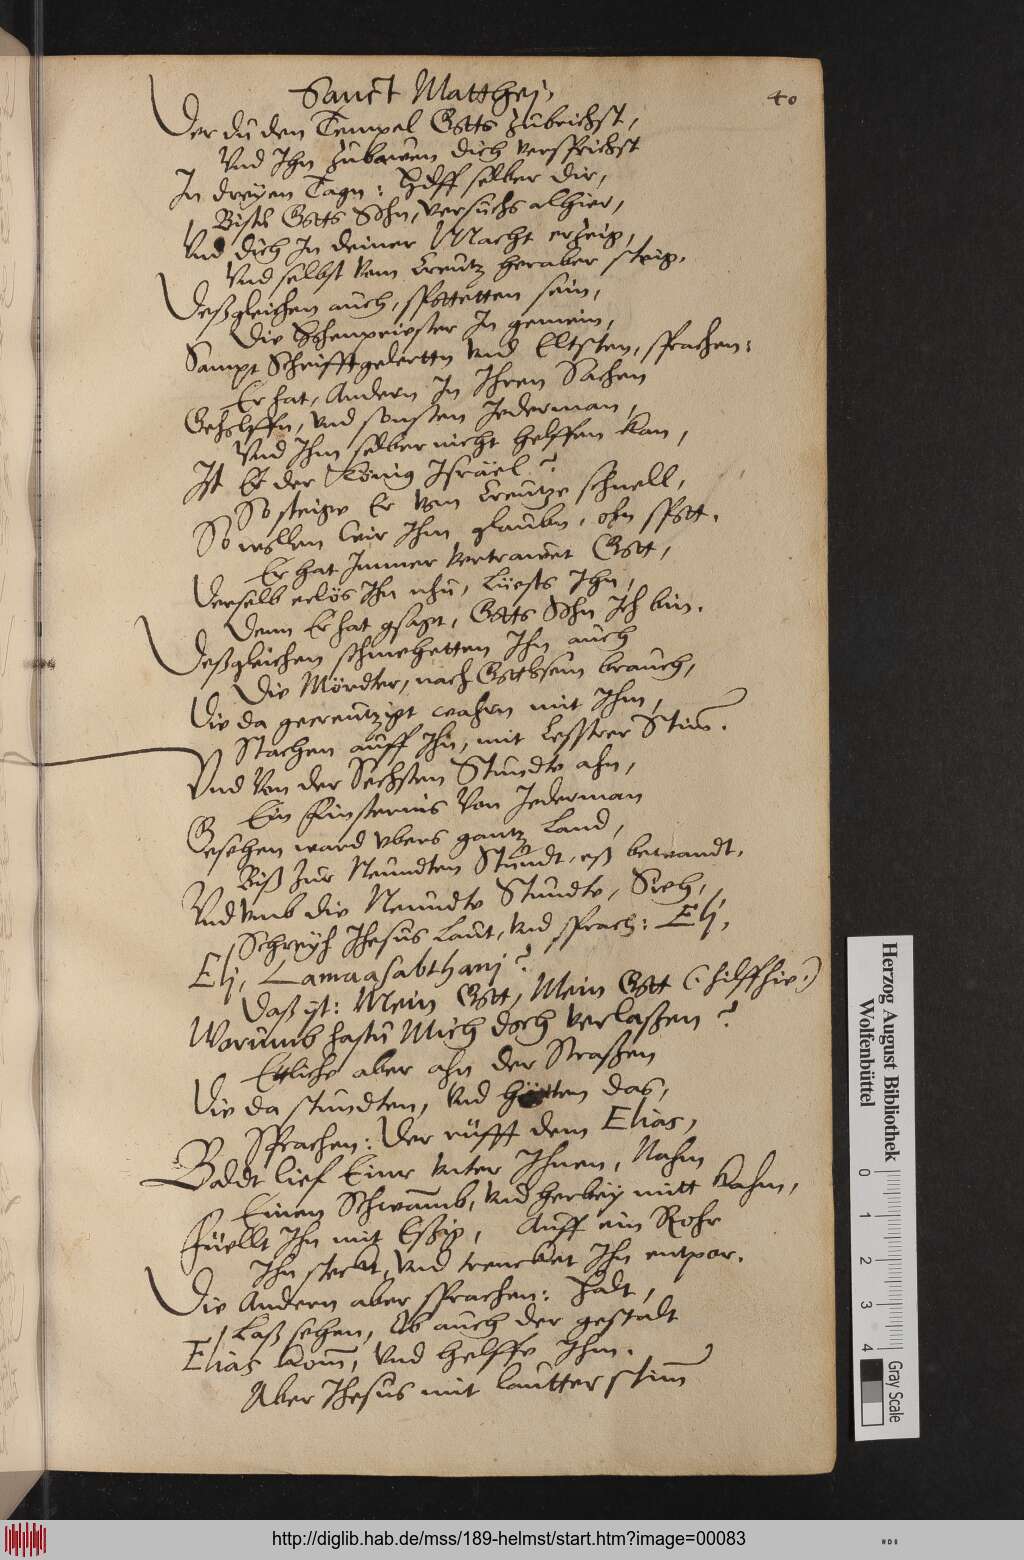 Sanct Matthej,
40
Der du den Tempel Gotts zubrichst,
Vnd Ihn zubawen dich versprichst
In dreyen Tagn: Hilff selber dir,
Bistu Gotts Sohn, versuchs alhier,
Vnd dich In deiner Macht erzeig,
Vnd selbst vom Creutz heraber steig.
Deßgleichen auch, spottetten sein,
Die Hohenpriester In gemein,
Sampt Schrifftgelertn vnd Eltsten, sprachen:
Er hat, Andern In Ihren Sachen
Geholffn, vnd sonsten Jederman,
Vnd Ihm selber nicht helffen kan,
Ist Er der König Israel?
So steige Er vom Creutze schnell,
So wollen wir Ihm glaubn, ohn spott.
Er hat Immer vertrawet Gott,
Derselb erlös Ihn nhu, Lüests Ihn,
Denn Er hat gsagt, Gotts Sohn Ich bin.
Deßgleichen schmehetten Ihn auch
Die Mördter, nach Gottlsein brauch,
Die da gecreutzigt wahrn mit Ihm,
Stachen auff Ihn, mit Lesstrer Stim.
Vnd Von der Sechsten Stundte ahn,
Ein Finsternis Von Jederman
Gesehen ward vbers gantz Land,
Biß zur Neundten Stundt, eß bewandt.
Vnd vmb die Neundte Stundte, Sieh,
Schreyh Jhesus Laut, vnd sprach: Elj,
Elj, Lamaasabthanj?
Daß ist: Mein Gott, Mein Gott (: hilff hie:)
Worumb hastu Mich doch verlaßen?
Ettliche aber ahn der Straßen
Die da stundten, vnd hörtten das,
Sprachen: Der rüfft dem Elias,
Baldt lief Einer vnter Ihnen, Nahm
Einen Schwamb, vnd herbey mitt kahm,
Füellt Ihn mit Eßig, Auff ein Rohr
Ihn steckt, vnd trencket Ihn entpor.
Die Andern aber sprachen: Halt,
Laß sehen, Ob auch der gestalt
Elias kom, vnd helffe Ihm.
Aber Jhesus mit lautter stim
Herzog August Bibliothek
Wolfenbüttel
0 1 2 3 4
Gray Scale
http://diglib.hab.de/mss/189-helmst/start.htm?image=00083